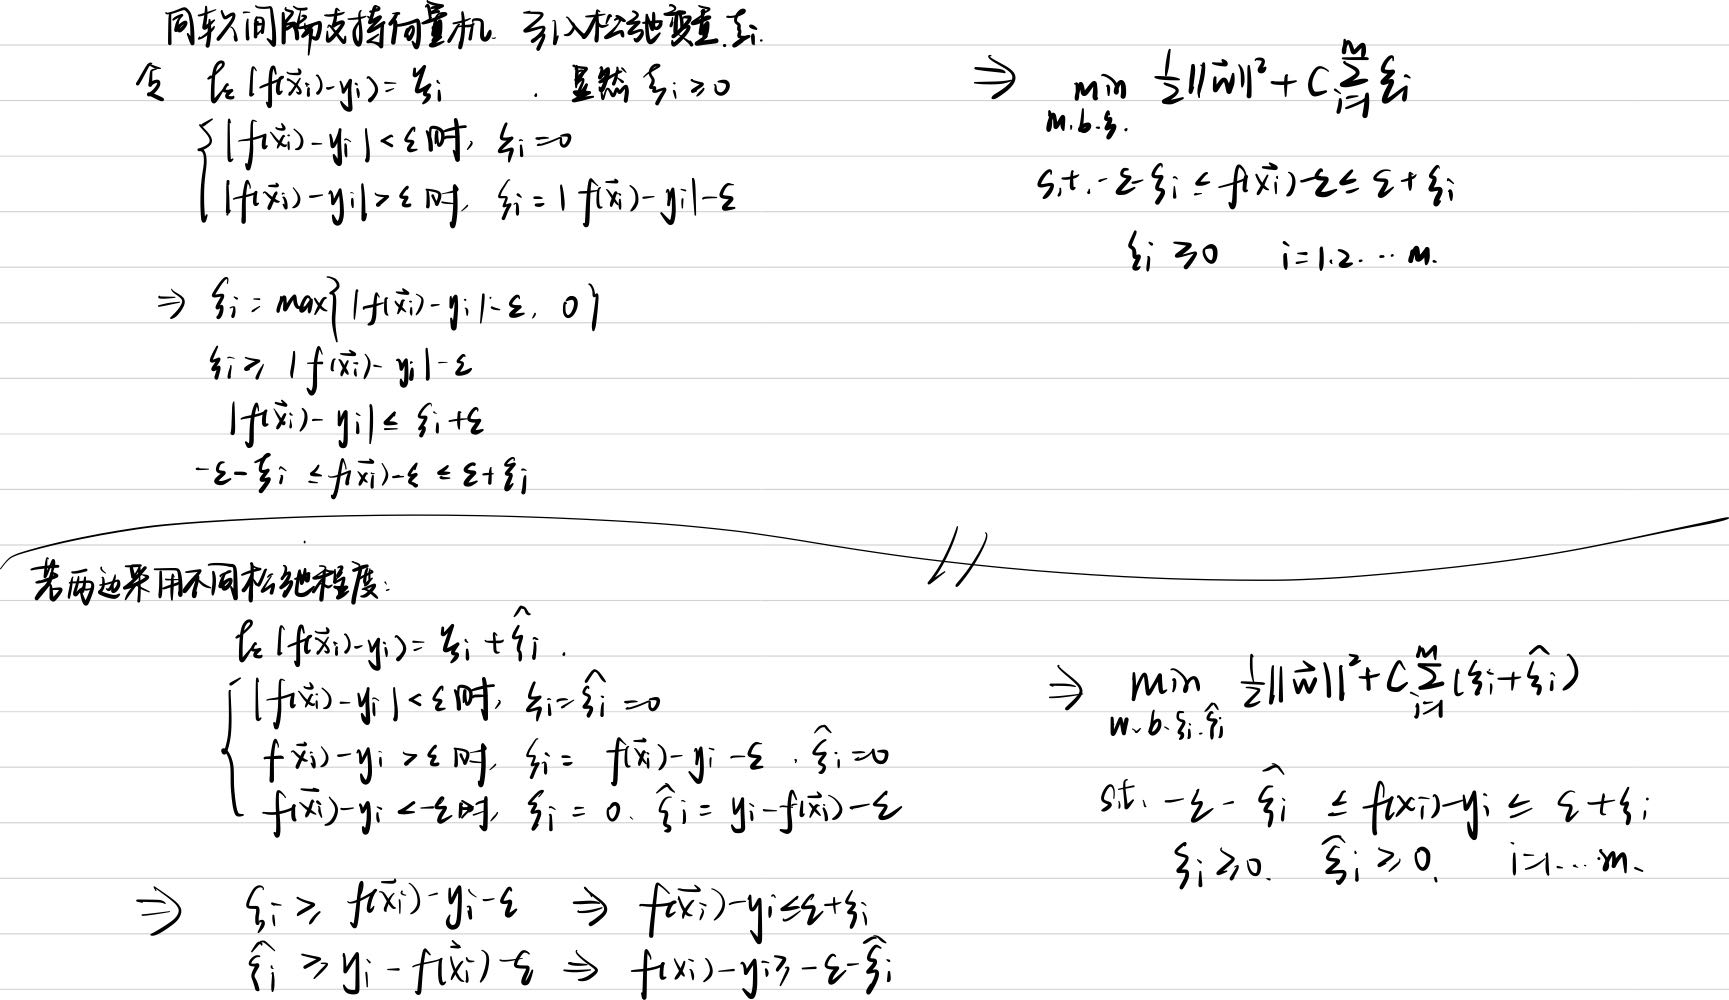 同软间隔支持向量机 引入松弛变量 ξi.
令 ℓε(f(x⃗i)-yi)=ξi . 显然 ξi≥0
{ |f(x⃗i)-yi|<ε时, ξi=0
|f(x⃗i)-yi|>ε时, ξi=|f(x⃗i)-yi|-ε
⇒ ξi=max{|f(x⃗i)-yi|-ε, 0}
ξi≥|f(x⃗i)-yi|-ε
|f(x⃗i)-yi|≤ξi+ε
-ε-ξi≤f(x⃗i)-ε≤ε+ξi
⇒ min 1/2||w⃗||²+C∑ξi
m
i=1
m.b.ξ.
s.t. -ε-ξi≤f(x⃗i)-ε≤ε+ξi
ξi≥0 i=1.2.…m.
若两边采用不同松弛程度:
ℓε(f(x⃗i)-yi)=ξi+ξ̂i.
{ |f(x⃗i)-yi|<ε时, ξi=ξ̂i=0
f(x⃗i)-yi>ε时, ξi=f(x⃗i)-yi-ε . ξ̂i=0
f(x⃗i)-yi<-ε时, ξi=0. ξ̂i=yi-f(x⃗i)-ε
⇒ ξi≥f(x⃗i)-yi-ε ⇒ f(x⃗i)-yi≤ε+ξi
ξ̂i≥yi-f(x⃗i)-ε ⇒ f(xi)-yi≥-ε-ξ̂i
⇒ min 1/2||w⃗||²+C∑(ξi+ξ̂i)
m
i=1
w.b.ξi.ξ̂i
s.t. -ε-ξ̂i ≤f(xi)-yi≤ε+ξi
ξi≥0. ξ̂i≥0. i=1…m.